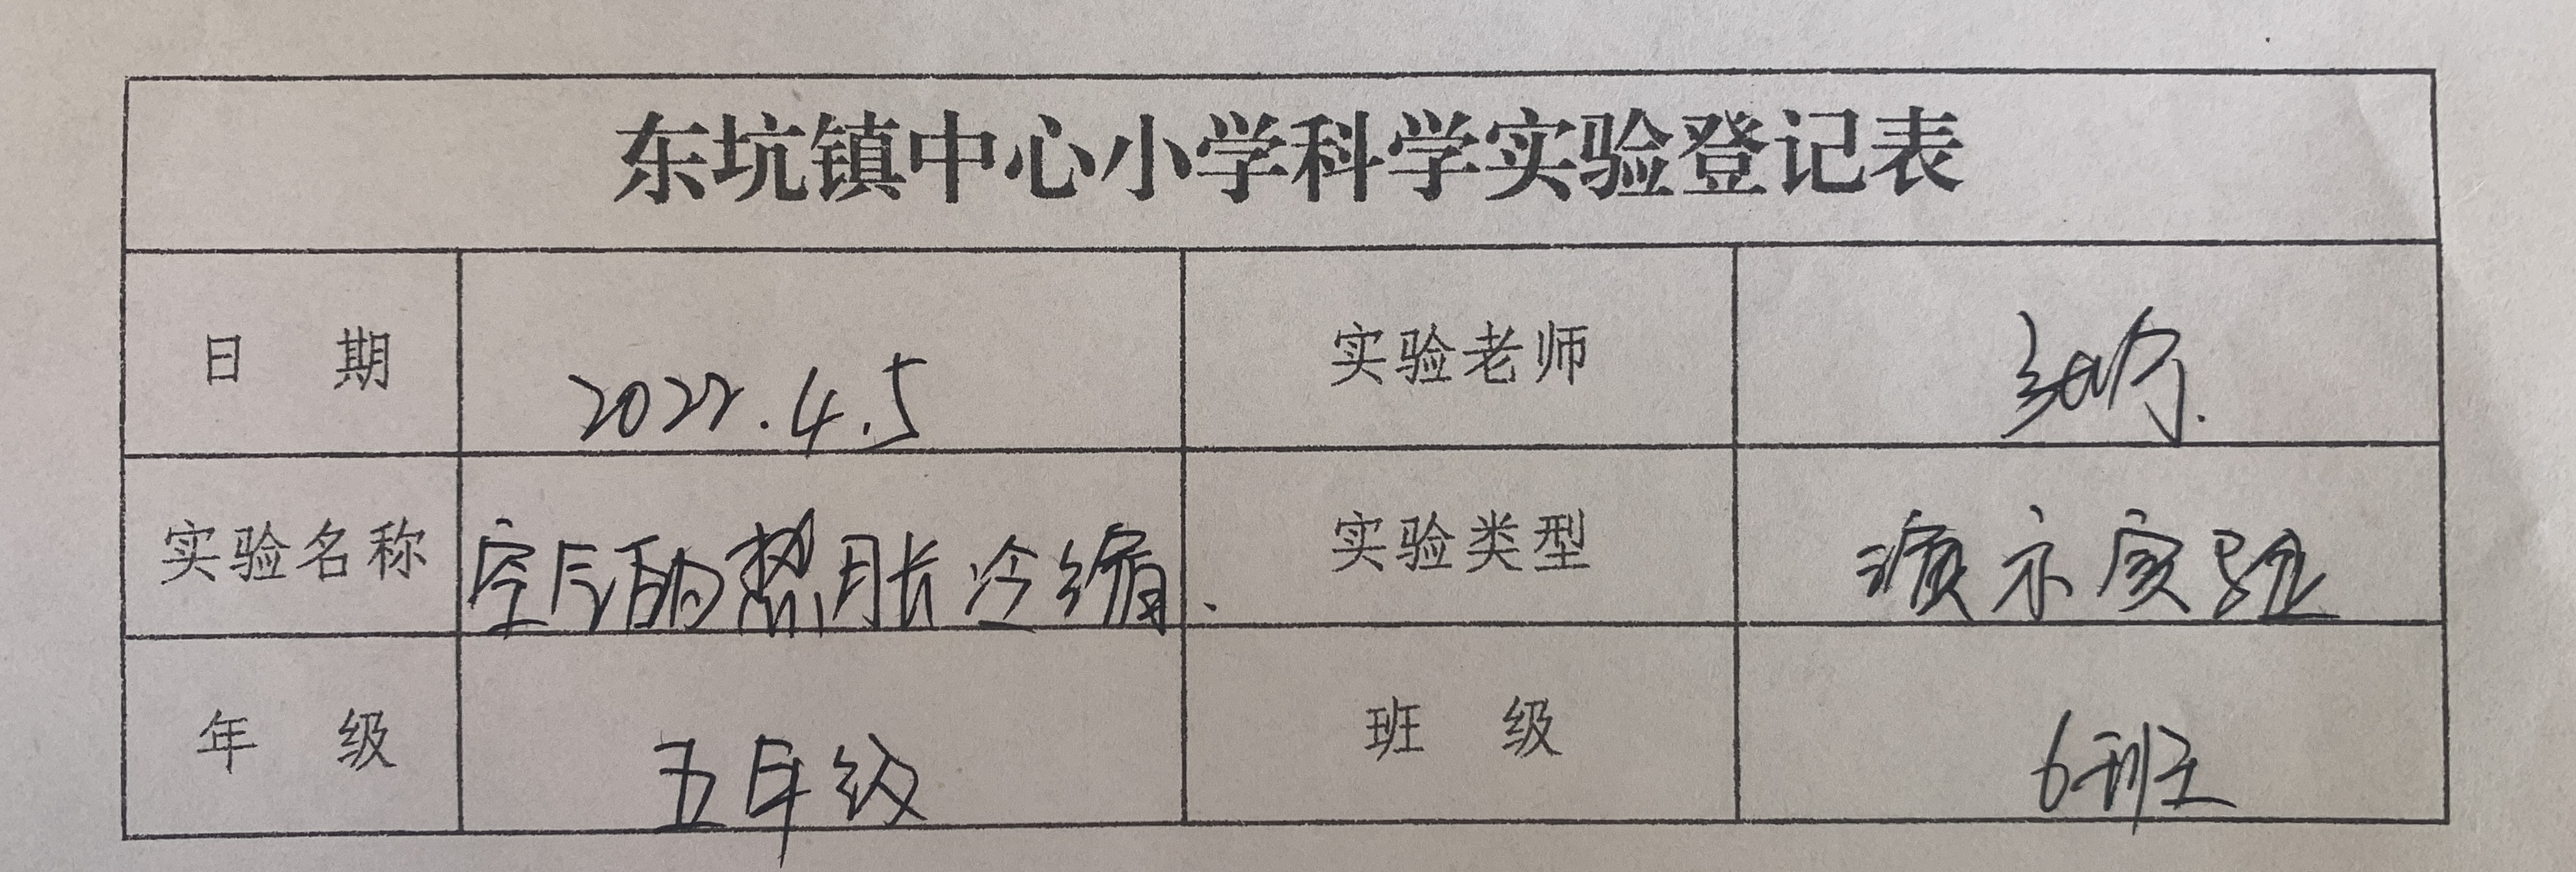 东坑镇中心小学科学实验登记表
日 期 2022.4.5 实验老师
实验名称 空气的热胀冷缩. 实验类型 演示实验
年 级 五年级 班 级 6班